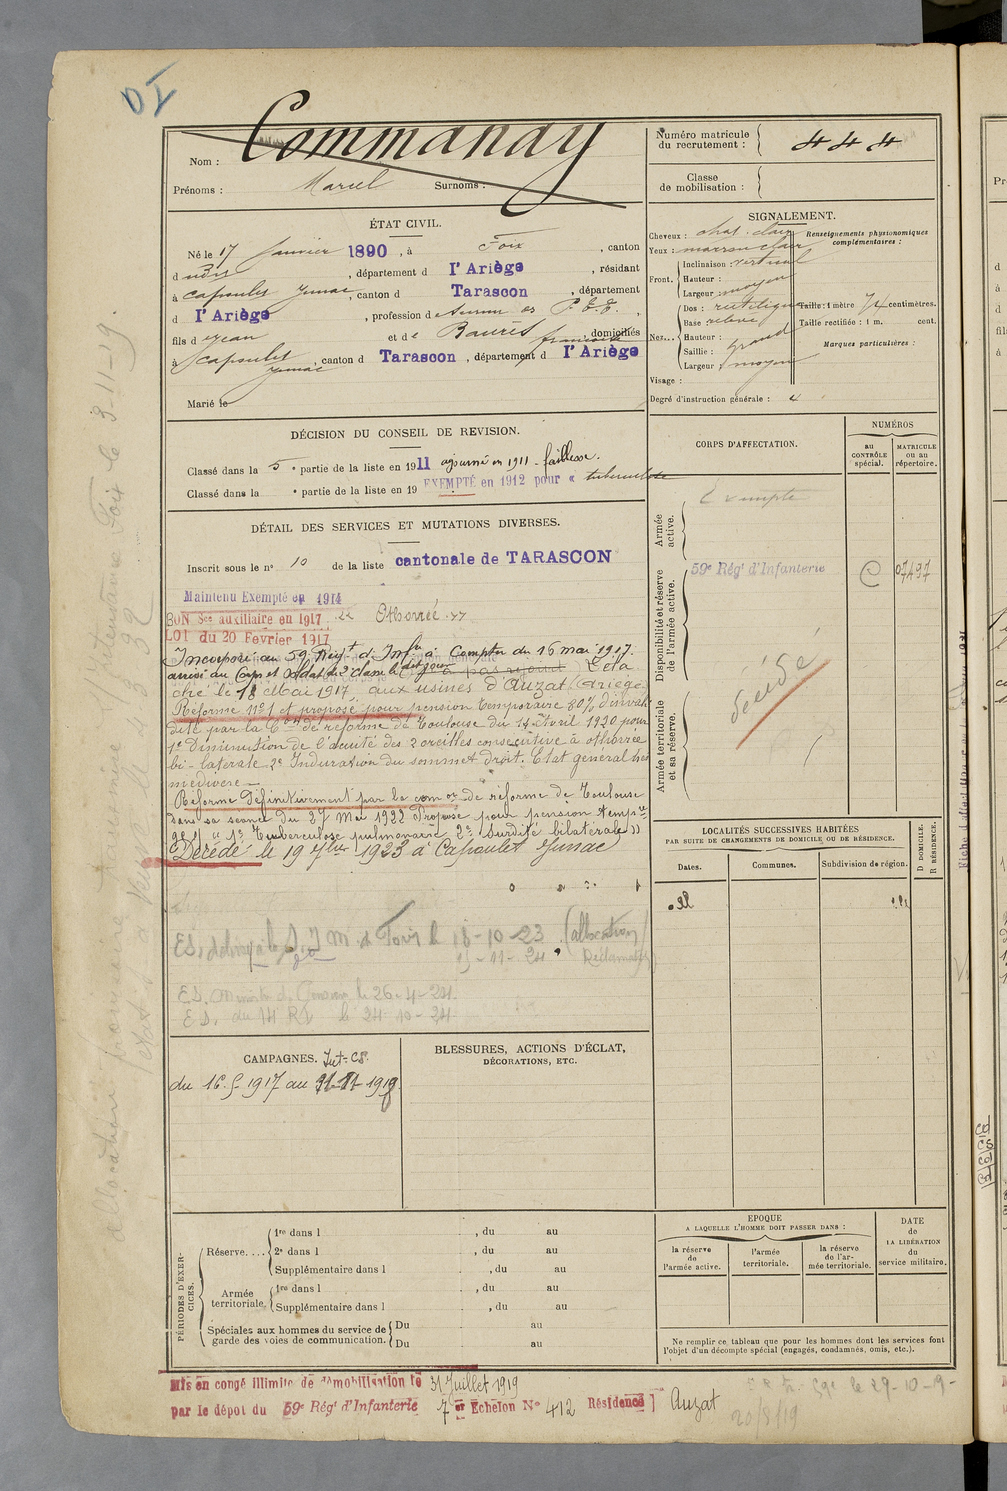 Nom : Commanay
Prénoms : Marcel Surnoms :
Numéro matricule du recrutement : 444
Classe de mobilisation :
ÉTAT CIVIL.
Né le 17 Janvier 1890, à Foix, canton
d udis, département d l'Ariège, résidant
à Capoulet Junac, canton d Tarascon, département
d l'Ariège, profession d
fils d e Jean et d e Baures françoise, domiciliés
à Capoulet Junac, canton d Tarascon, département d l'Ariège
Marié le
SIGNALEMENT.
Cheveux : chat. clair
Yeux : marron clair
Renseignements physionomiques complémentaires :
Front. Inclinaison : vertical
Hauteur :
Largeur moyen
Nez... Dos : rectiligne
Base relevé
Hauteur :
Saillie : grand
Largeur : moyen
Taille : 1 mètre 74 centimètres.
Taille rectifiée : 1 m. cent.
Marques particulières :
Visage :
Degré d'instruction générale : 4
DÉCISION DU CONSEIL DE REVISION.
Classé dans la 5e partie de la liste en 1911 ajourné en 1911 - faiblesse.
Classé dans la e partie de la liste en 19 EXEMPTÉ en 1912 pour « tuberculose
DÉTAIL DES SERVICES ET MUTATIONS DIVERSES.
Inscrit sous le n° 10 de la liste cantonale de TARASCON
Maintenu Exempté en 1914
BON Sce auxiliaire en 1917 « Othorrée »
LOI du 20 Février 1917
Incorporé au 59 Régt d'Infie à Compter du 16 mai 1917.
arrivé au Corps et soldat de 2e classe le dit jour Déta
ché le 18 Mai 1917 aux usines d'Auzat (Ariège
Réformé N°1 et proposé pour pension temporaire 80% d'invali
dité par la Con de réforme de Toulouse du 14 Avril 1920 pour
1° Diminution de l'acuité des 2 oreilles consécutive à othorrée
bi-latérale 2° Induration du sommet droit. Etat général très
médiocre -
Réformé Définitivement par la comon de réforme de Toulouse
dans sa séance du 27 Mai 1922 Proposé pour pension
"1° Tuberculose pulmonaire 2° Surdité bilatérale"
Décédé le 19 7bre 1923 à Capoulet Junac
le 18-10-23 (allocation)
25-11-24
E.S. le 26-4-24
E.S. du 14 le 24-10-24
CORPS D'AFFECTATION.
NUMÉROS
au CONTRÔLE spécial.
MATRICULE ou au répertoire.
Armée active.
Exempté
Disponibilité et réserve de l'armée active.
59e Régt d'Infanterie C 07497
Armée territoriale et sa réserve.
décédé
LOCALITÉS SUCCESSIVES HABITÉES
PAR SUITE DE CHANGEMENTS DE DOMICILE OU DE RÉSIDENCE.
Dates. Communes. Subdivision de région.
D DOMICILE.
R RÉSIDENCE.
CAMPAGNES. Int. CS.
du 16-5-1917 au 11-11-1918
BLESSURES, ACTIONS D'ÉCLAT,
DÉCORATIONS, ETC.
PÉRIODES D'EXERCICES.
Réserve.... 1re dans l , du au
2e dans l , du au
Supplémentaire dans l , du au
Armée territoriale. 1re dans l , du au
Supplémentaire dans l , du au
Spéciales aux hommes du service de garde des voies de communication. Du au
Du au
EPOQUE
A LAQUELLE L'HOMME DOIT PASSER DANS :
la réserve de l'armée active.
l'armée territoriale.
la réserve de l'armée territoriale.
DATE de LA LIBÉRATION du service militaire.
Ne remplir ce tableau que pour les hommes dont les services font
l'objet d'un décompte spécial (engagés, condamnés, omis, etc.).
Mis en congé illimité de démobilisation le 31 Juillet 1919
par le dépot du 59e Régt d'Infanterie 7e Echelon N° 412 Résidence Auzat
le 29-10-19-
20/8/19